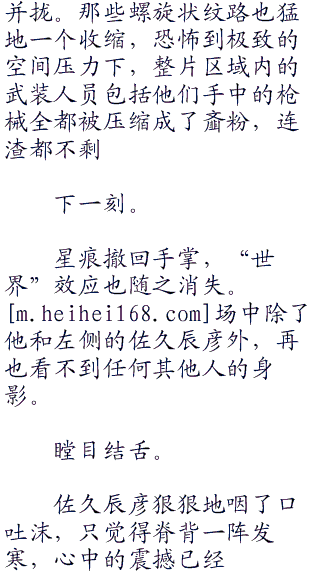 并拢。那些螺旋状纹路也猛
地一个收缩，恐怖到极致的
空间压力下，整片区域内的
武装人员包括他们手中的枪
械全都被压缩成了齑粉，连
渣都不剩
下一刻。
星痕撤回手掌，“世
界”效应也随之消失。
[m.heihei168.com]场中除了
他和左侧的佐久辰彦外，再
也看不到任何其他人的身
影。
瞠目结舌。
佐久辰彦狠狠地咽了口
吐沫，只觉得脊背一阵发
寒，心中的震撼已经